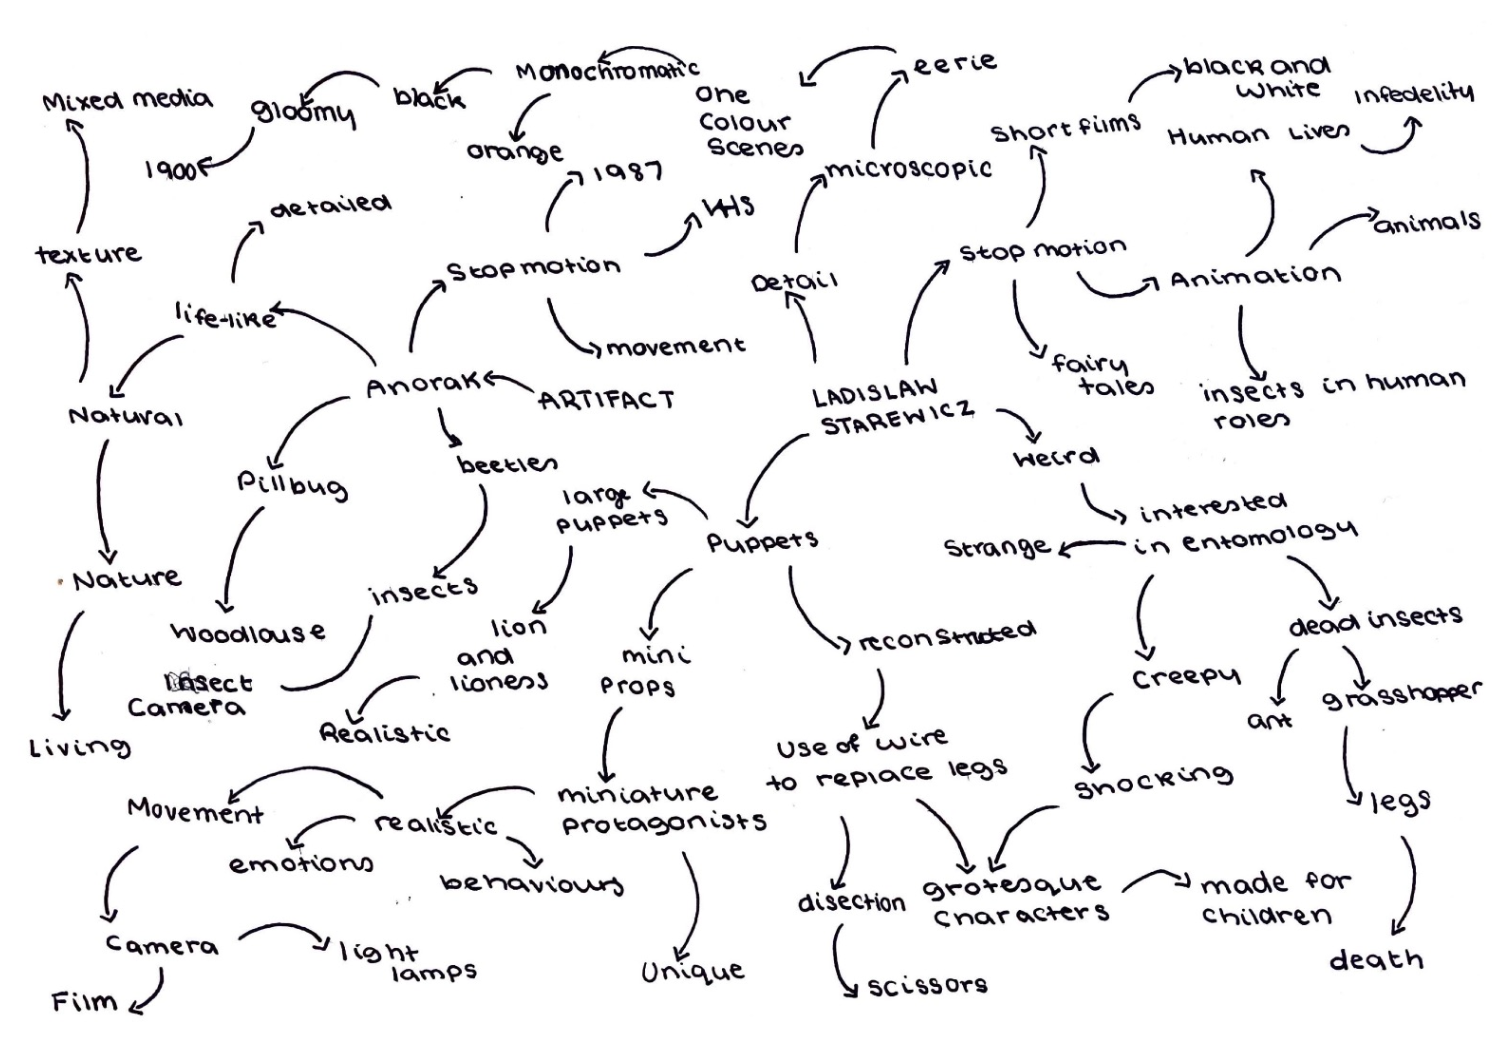 Mixed media
gloomy
black
Monochromatic
One
Colour
Scenes
eerie
black and
White
Infedelity
1900
orange
1987
microscopic
Short films
Human Lives
detailed
VHS
animals
texture
Stop motion
Detail
Stop motion
Animation
life-like
movement
fairy
tales
insects in human
roles
Natural
Anorak
ARTIFACT
LADISLAW
STAREWICZ
Weird
Pillbug
beetles
large
puppets
Puppets
interested
in entomology
Strange
Nature
insects
Woodlouse
lion
and
lioness
mini
Props
reconstructed
dead insects
Insect
Camera
Creepy
ant
grasshopper
Living
Realistic
Use of wire
to replace legs
Shocking
legs
Movement
realistic
miniature
protagonists
emotions
behaviours
disection
grotesque
Characters
made for
Children
Camera
light
lamps
Unique
scissors
death
Film